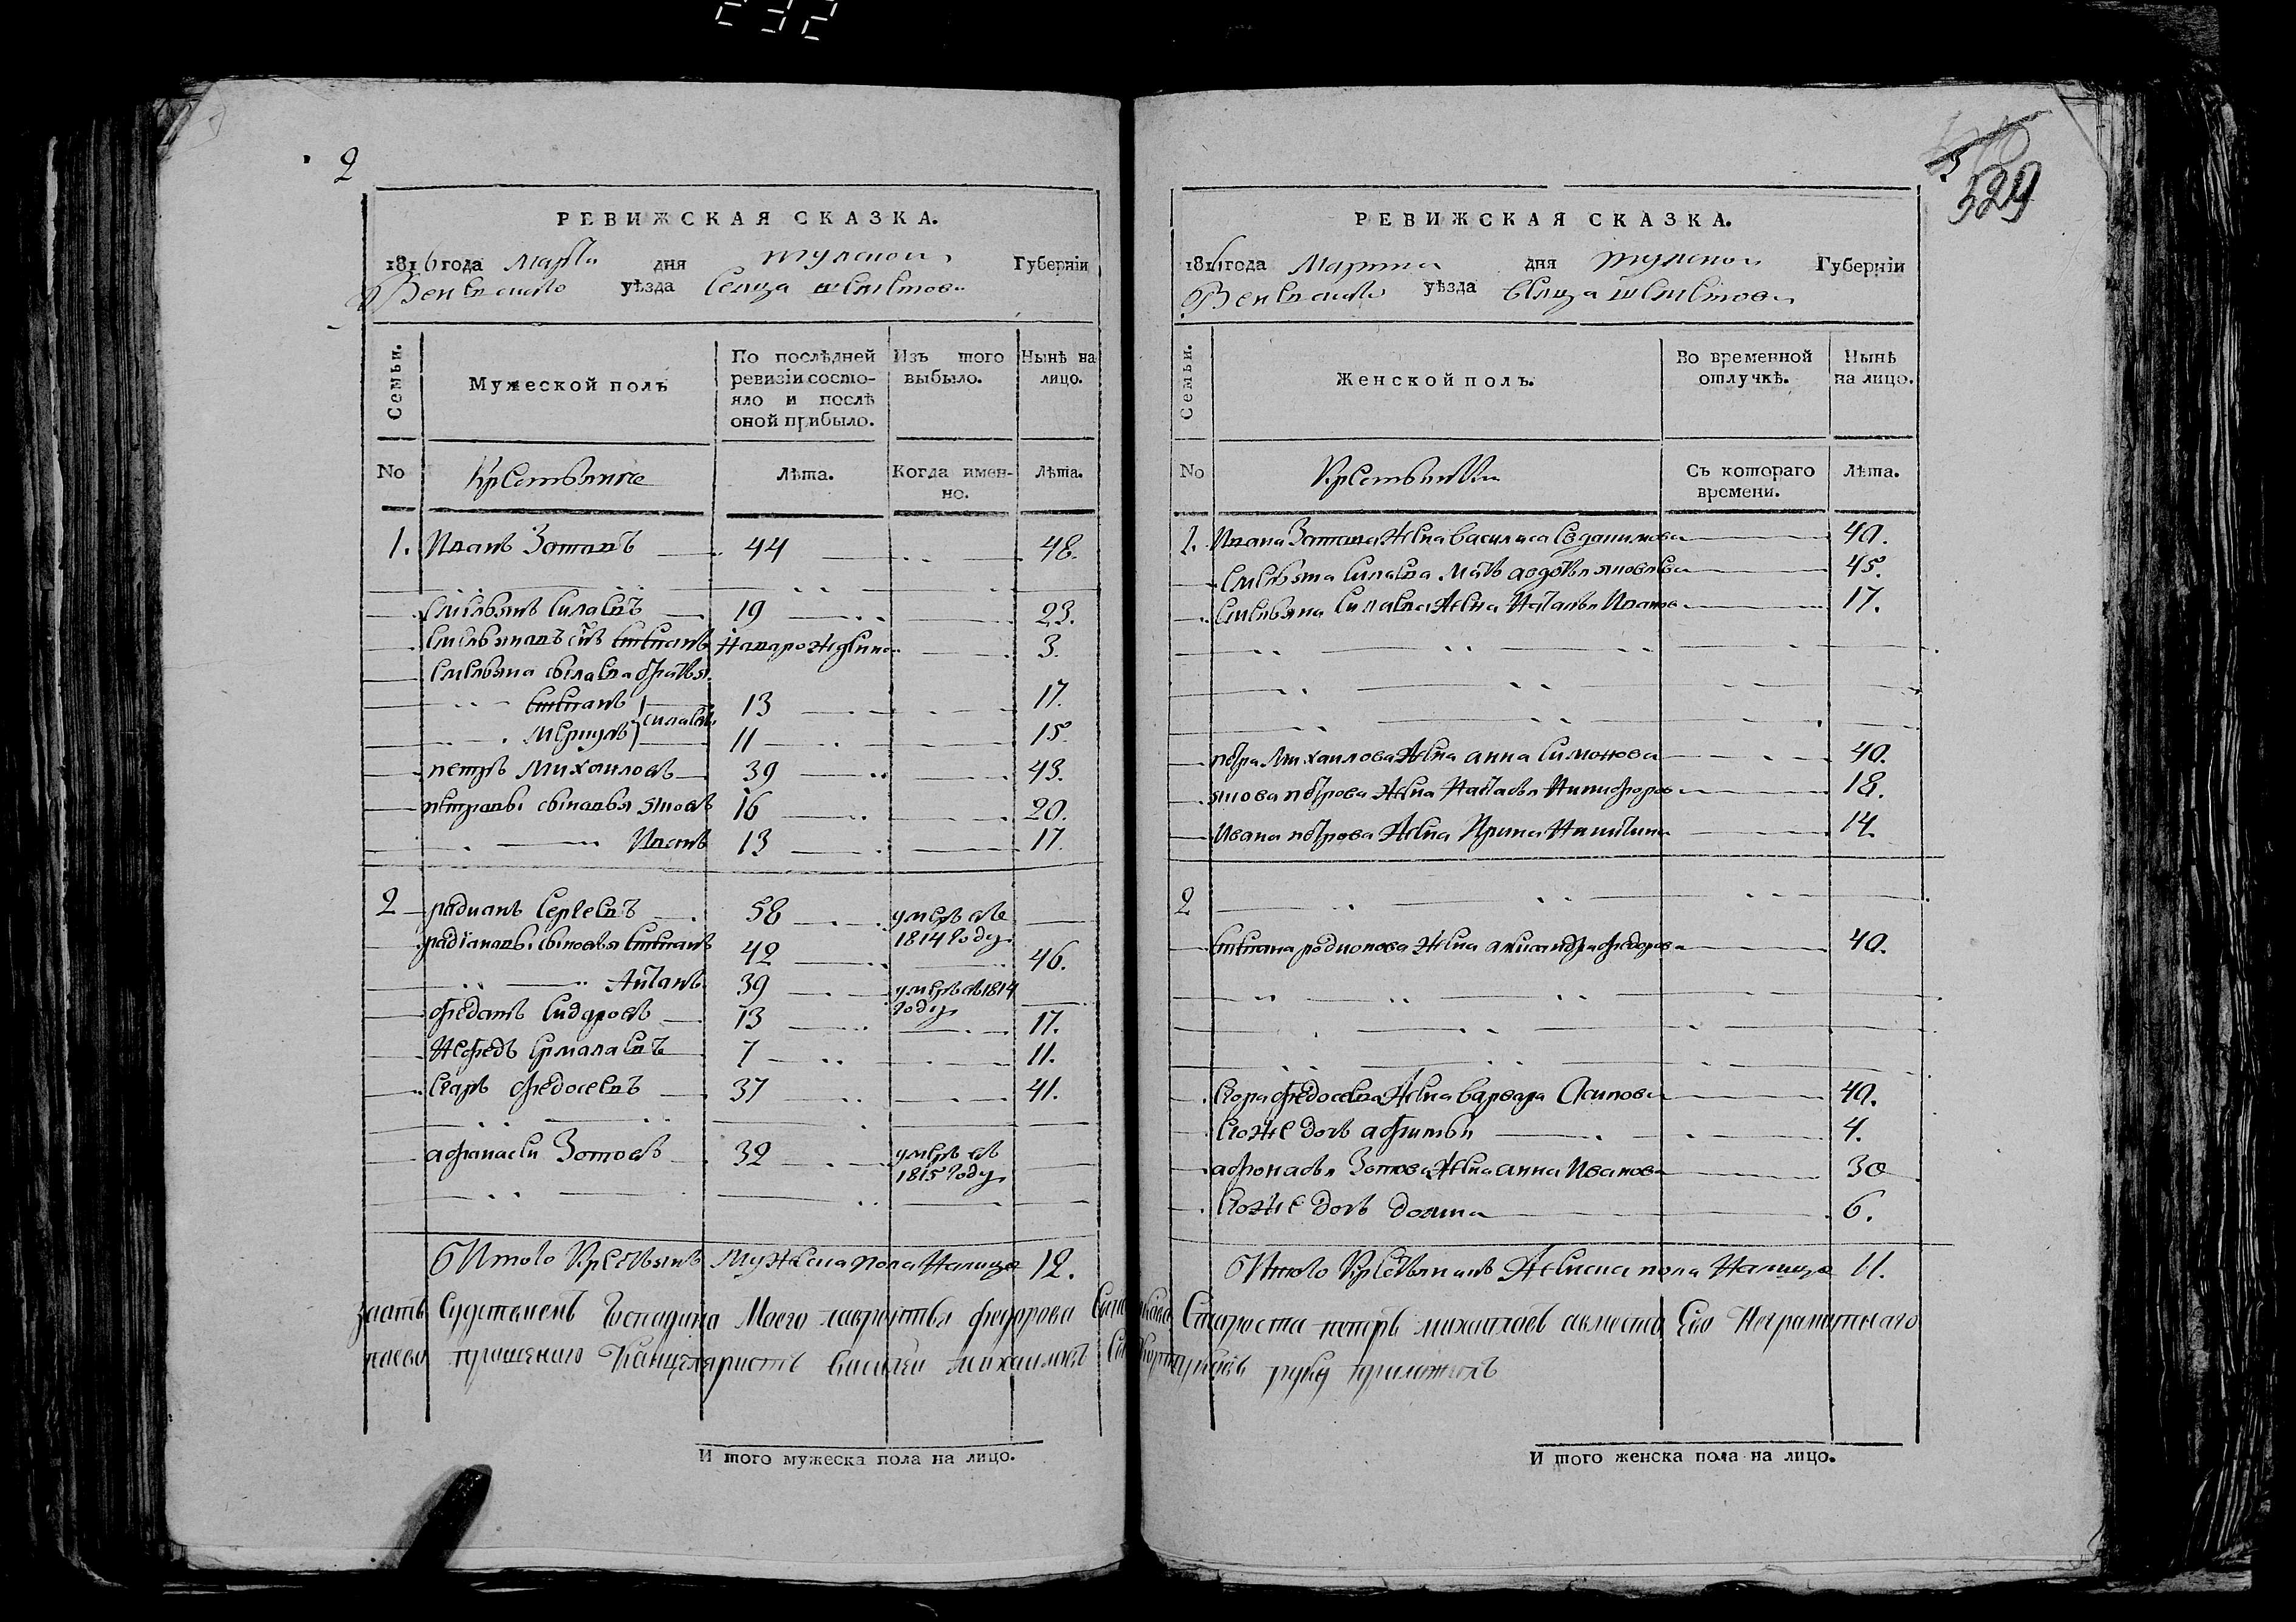 232
2
РЕВИЖСКАЯ СКАЗКА.
1816 года Марта дня тулской Губерніи
Веневского уѣзда Селца
Семьи.
Мужеской полъ
По послѣдней ревизіи состо-
яло и послѣ
оной прибыло.
Изъ того
выбыло.
Нынѣ на
лицо.
No
Крестьяне
Лѣта.
Когда имен-
но.
Лѣта.
1. Иванъ Зотовъ 44 48.
Емельянъ Силаевъ 19 23.
Емельяновъ сынъ степанъ Новорожденной 3.
Емельяна силаева братья
степанъ 13 17.
Меркулъ силаевы 11 15.
петръ Михаиловъ 39 43.
петровы сыновья яковъ 16 20.
Иванъ 13 17.
2 радионъ Сергеевъ 58 умеръ въ
1814 году
радионовы сыновья степанъ 42 46.
Антонъ 39 умеръ в 1814
году
федотъ Сидоровъ 13 17.
Нефедъ Ермалаевъ 7 11.
Егоръ федосеевъ 37 41.
афонасеи Зотовъ 32 умеръ въ
1815 году
Итого крестьянъ мужеска пола Налицо 12.
И того мужеска пола на лицо.
329
РЕВИЖСКАЯ СКАЗКА.
1816 года Марта дня тулской Губерніи
Веневского уѣзда Селца
Семьи.
Женской полъ.
Во временной
отлучкѣ.
Нынѣ
на лицо.
No
Крестьянки
Съ котораго
времени.
Лѣта.
1. Ивана Зотова жена василиса Седонимова 40.
Емельяна силаева мать авдотья яковлева 45.
Емельяна Силаева жена Наталья Иванова 17.
петра Михаилова жена анна Симонова 40.
якова петрова жена Наталья Никифорова 18.
Ивана петрова жена Ирина Никитина 14.
2
степана родионова жена александра федорова 40.
Егора федосеева жена варвара Осипова 40.
Егоже дочь афимья 4.
афонасья Зотова жена анна Иванова 30
Егоже дочь домна 6.
Итого крестьянъ женска пола Налицо 11.
Староста петръ михаиловъ а вместо Ево Неграмотнаго
поево прошению Канцеляристъ василеи михаиловъ руку приложилъ
И того женска пола на лицо.